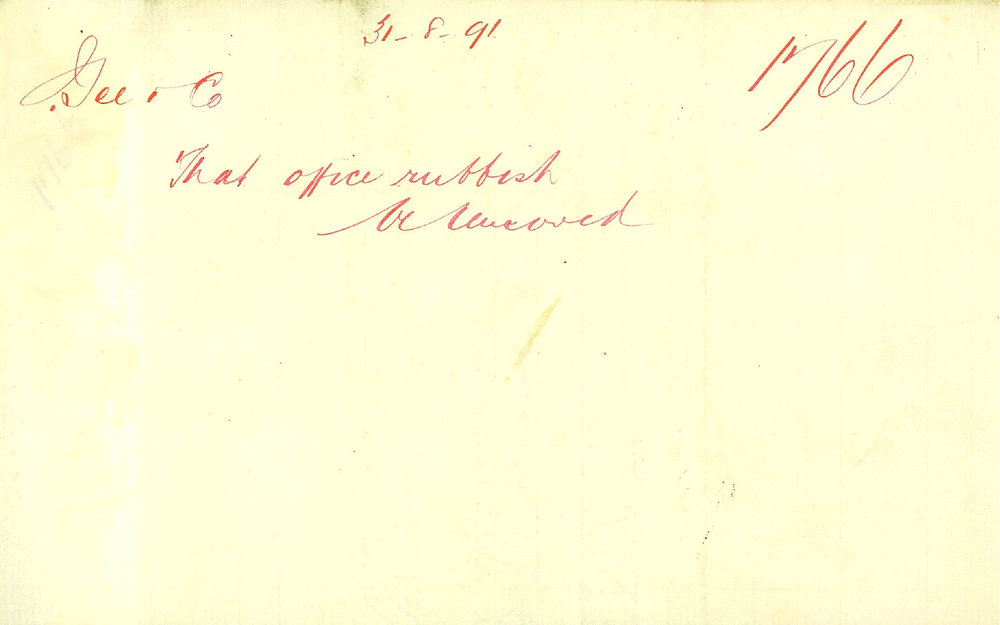 31-8-91
1766
Gee & Co
That office rubbish
be removed